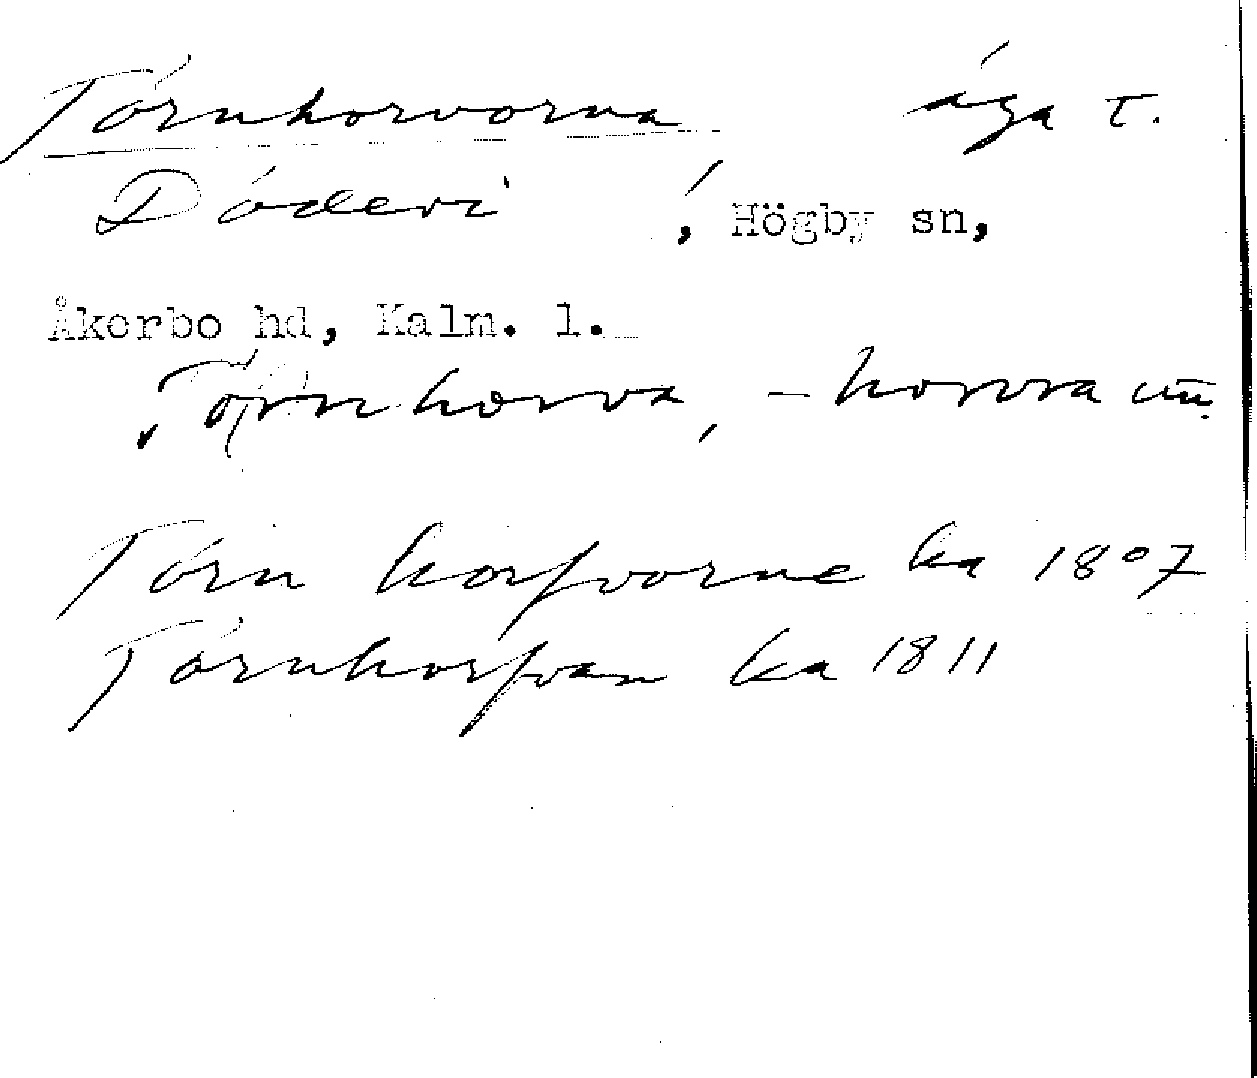 Törnhorvorna äga t.
Dödevi, Högby sn,
Åkerbo hd, Kalm. l.
Törnhorva, -horvra
Törn horfvorne ka 1807
Törnhorfvan ka 1811